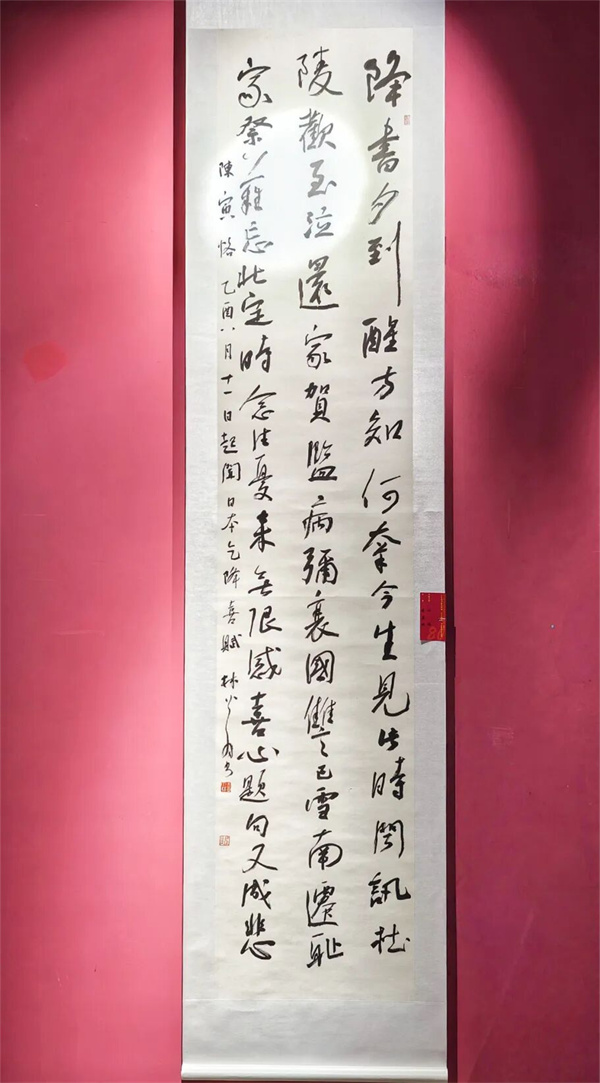 降書夕到醒方知何幸今生見此時聞訊杜
陵歡至泣還家賀監病彌衰國讎已雪南遷耻
家祭難忘北定時念往憂来無限感喜心題句又成悲
陳寅恪乙酉八月十一日起聞日本乞降喜賦 林